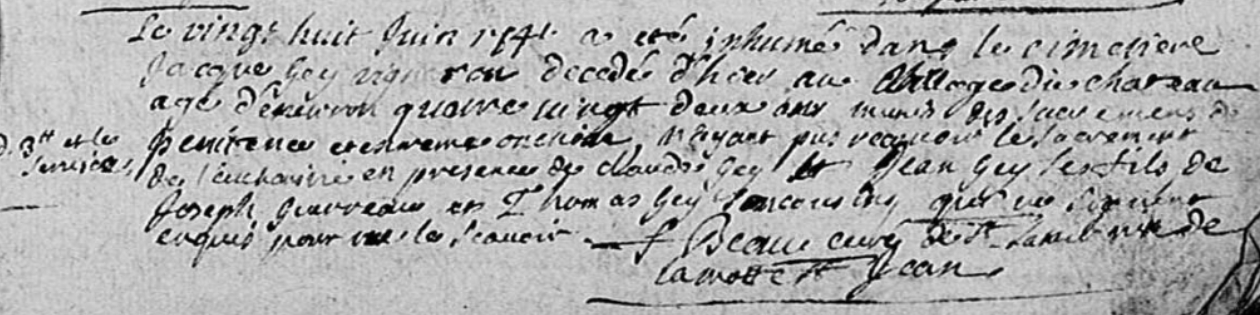 Le vingt huit Juin 1741 a eté inhumé dans le cimetiere
Jacque Gey vigneron decedé d'hier au village du chateau
agé d'environ quatre vingt deux ans muni des sacremens de
penitence et extreme onction, n'ayant pus recevoir le sacrement
d. 3tt et le
services
de l'eucharistie en presence de claude Gey et Jean Gey ses fils de
Joseph et Thomas Gey son cousins qui ne signent
enquis pour ne le scavoir.
Beau curé de St de
lamotte St Jean